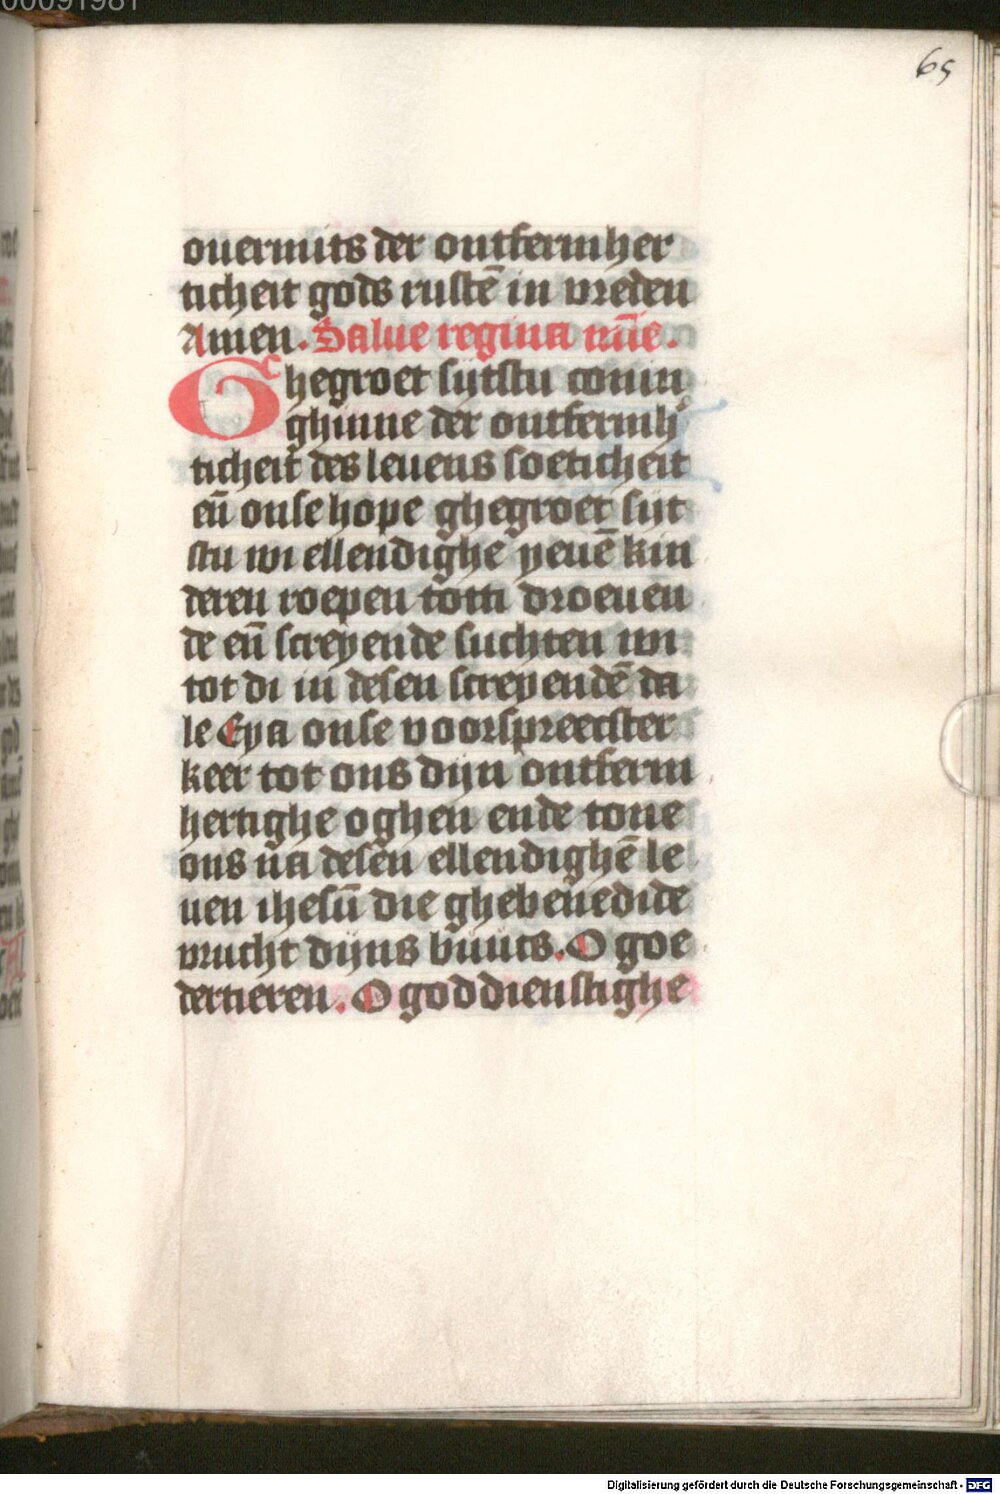 65
ouermits der ontfermher
ticheit gods rustē in vreden
Amen. Salue regina mīe.
Ghegroet sijtstu conin
ghinne der ontfermh
ticheit des leuens soeticheit
eñ onse hope ghegroet sijt
stu wi ellendighe yeuē kin
deren roepen totti droeuen
de eñ screyende suchten wi
tot di in desen screyendē da
le Eya onse voorspreecster
keer tot ons dijn ontferm
hertighe oghen ende tone
ons na desen ellendighē le
uen ihesū die ghebenedide
vrucht dijns buucs. O goe
dertieren. O goddienstighe
Digitalisierung gefördert durch die Deutsche Forschungsgemeinschaft - DFG